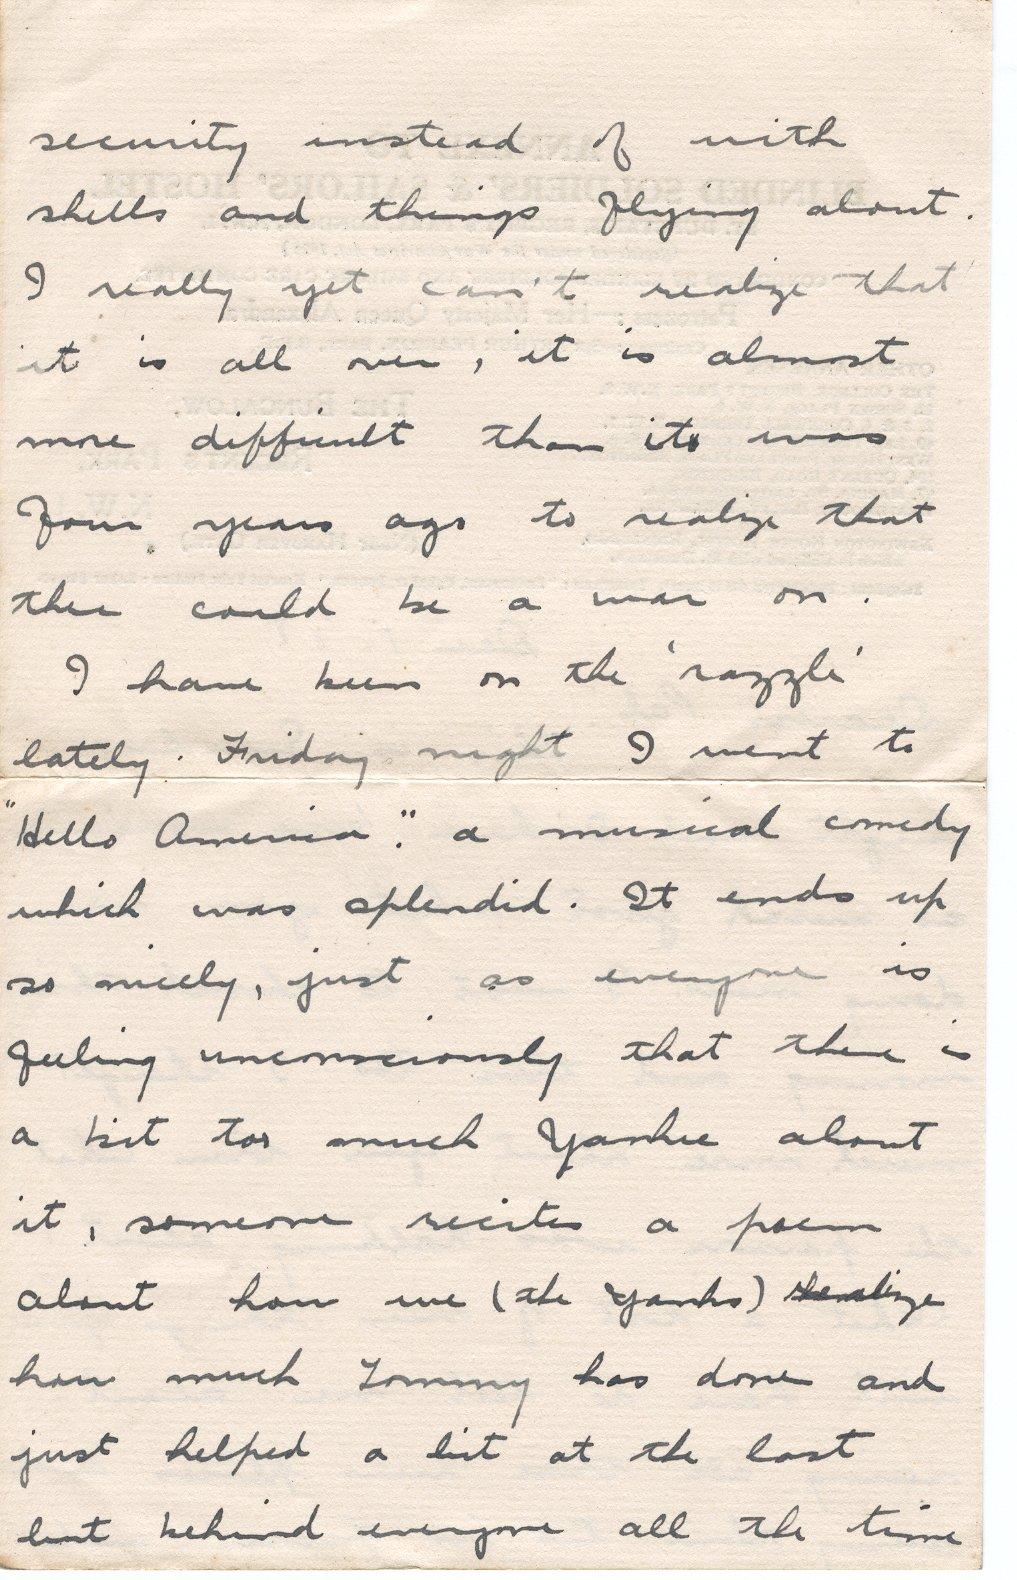 security instead of with
shells and things flying about.
I really yet can't realize that
it is all over, it is almost
more difficult than it was
four years ago to realize that
ther could be a war on.
I have been on the 'razzle'
lately. Friday night I went to
"Hello America". a musical comedy
which was splendid. It ends up
so nicely, just as everyone is
feeling unconsciously that there is
a bit too much Yankee about
it, someone recites a poem
about how we (the Yanks) realize
how much Tommy has done and
just helped a bit at the last
but behind everyone all the time